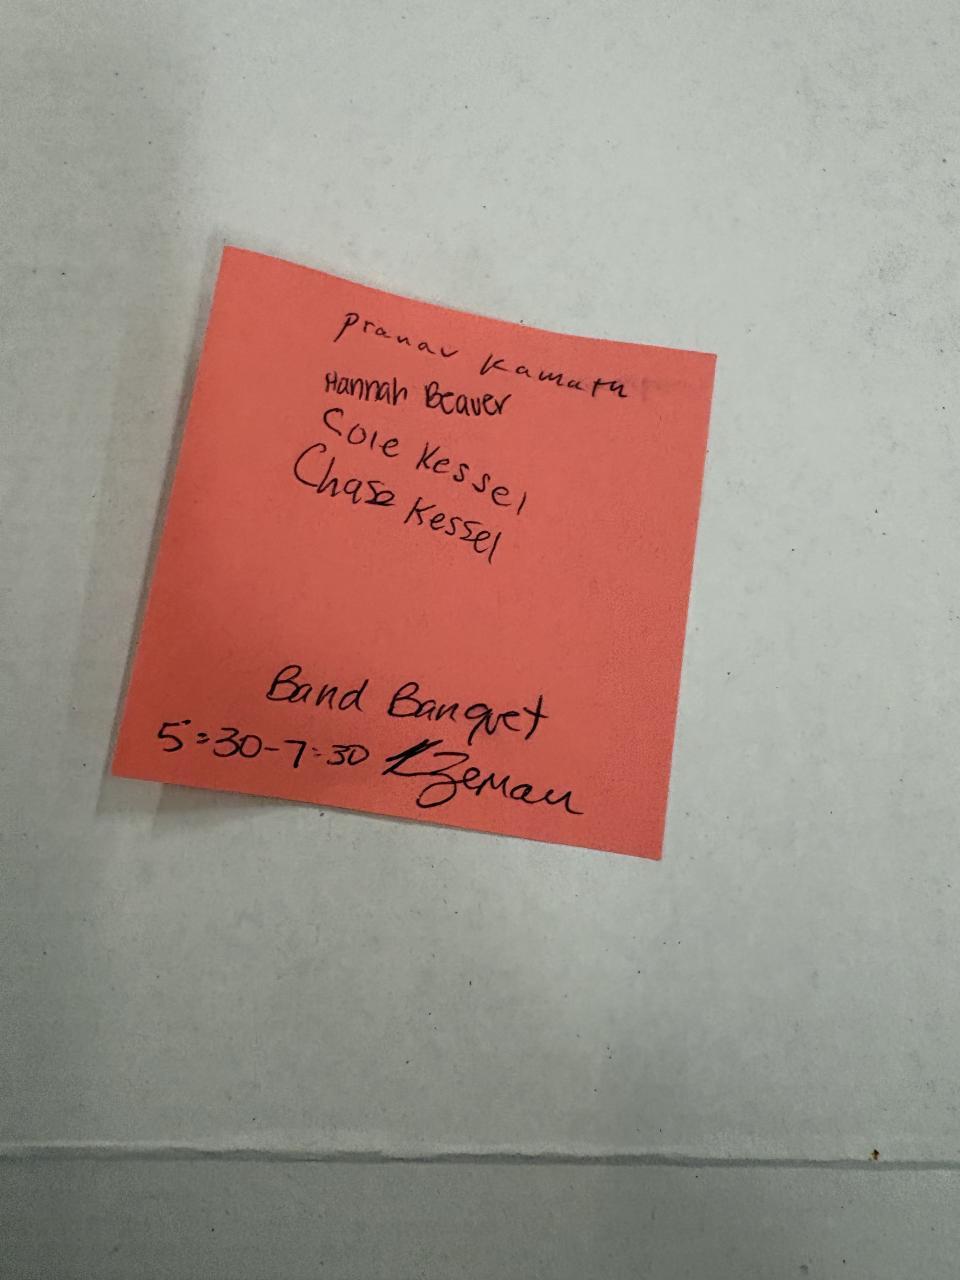 Pranav Kamath
Hannah Beaver
Cole Kessel
Chase Kessel
Band Banquet
5:30-7:30 KZeman